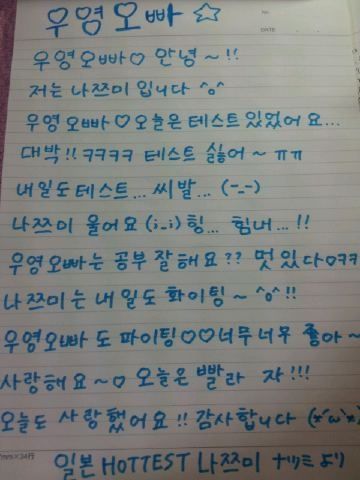 우영오빠 ☆
No.
DATE
우영오빠♡ 안녕~!!
저는 나쯔미 입니다 ^o^
우영오빠♡오늘은 테스트 있었어요...
대박!! ㅋㅋㅋㅋ 테스트 싫어~ ㅠㅠ
내일도 테스트... 씨발... (-_-)
나쯔미 울어요 (i_i) 힝... 힘내...!!
우영오빠는 공부 잘해요?? 멋있다ㅇㅋㅋ
나쯔미는 내일도 화이팅~ ^o^!!
우영오빠도 파이팅♡♡너무너무 좋아~
사랑해요~♡ 오늘은 빨라 자!!!
오늘도 사랑했어요!! 감사합니다 (*´ω`*)
일본 HOTTEST 나쯔미 ナツミ より